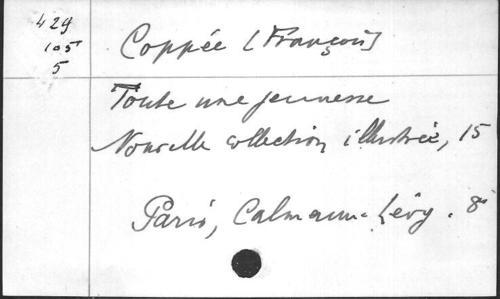 429
105
5
Coppée [François]
Toute une jeunesse
Nouvelle collection illustrée, 15
Paris, Calmann-Lévy. 8°